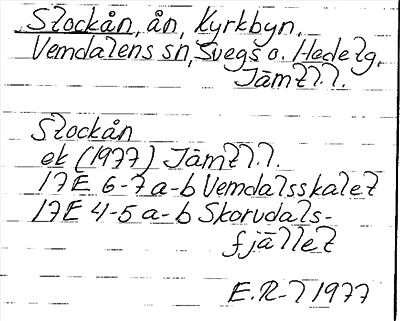 Slockån, ån, Kyrkbyn,
Vemdalens sn, Svegs o. Hedelg.
Jämtl.l.
Slockån
ek (1977) Jämtl.l.
17E 6-7 a-b Vemdalsskalet
17E 4-5 a-b Skorvdals-
fjället
E.R-l 1977